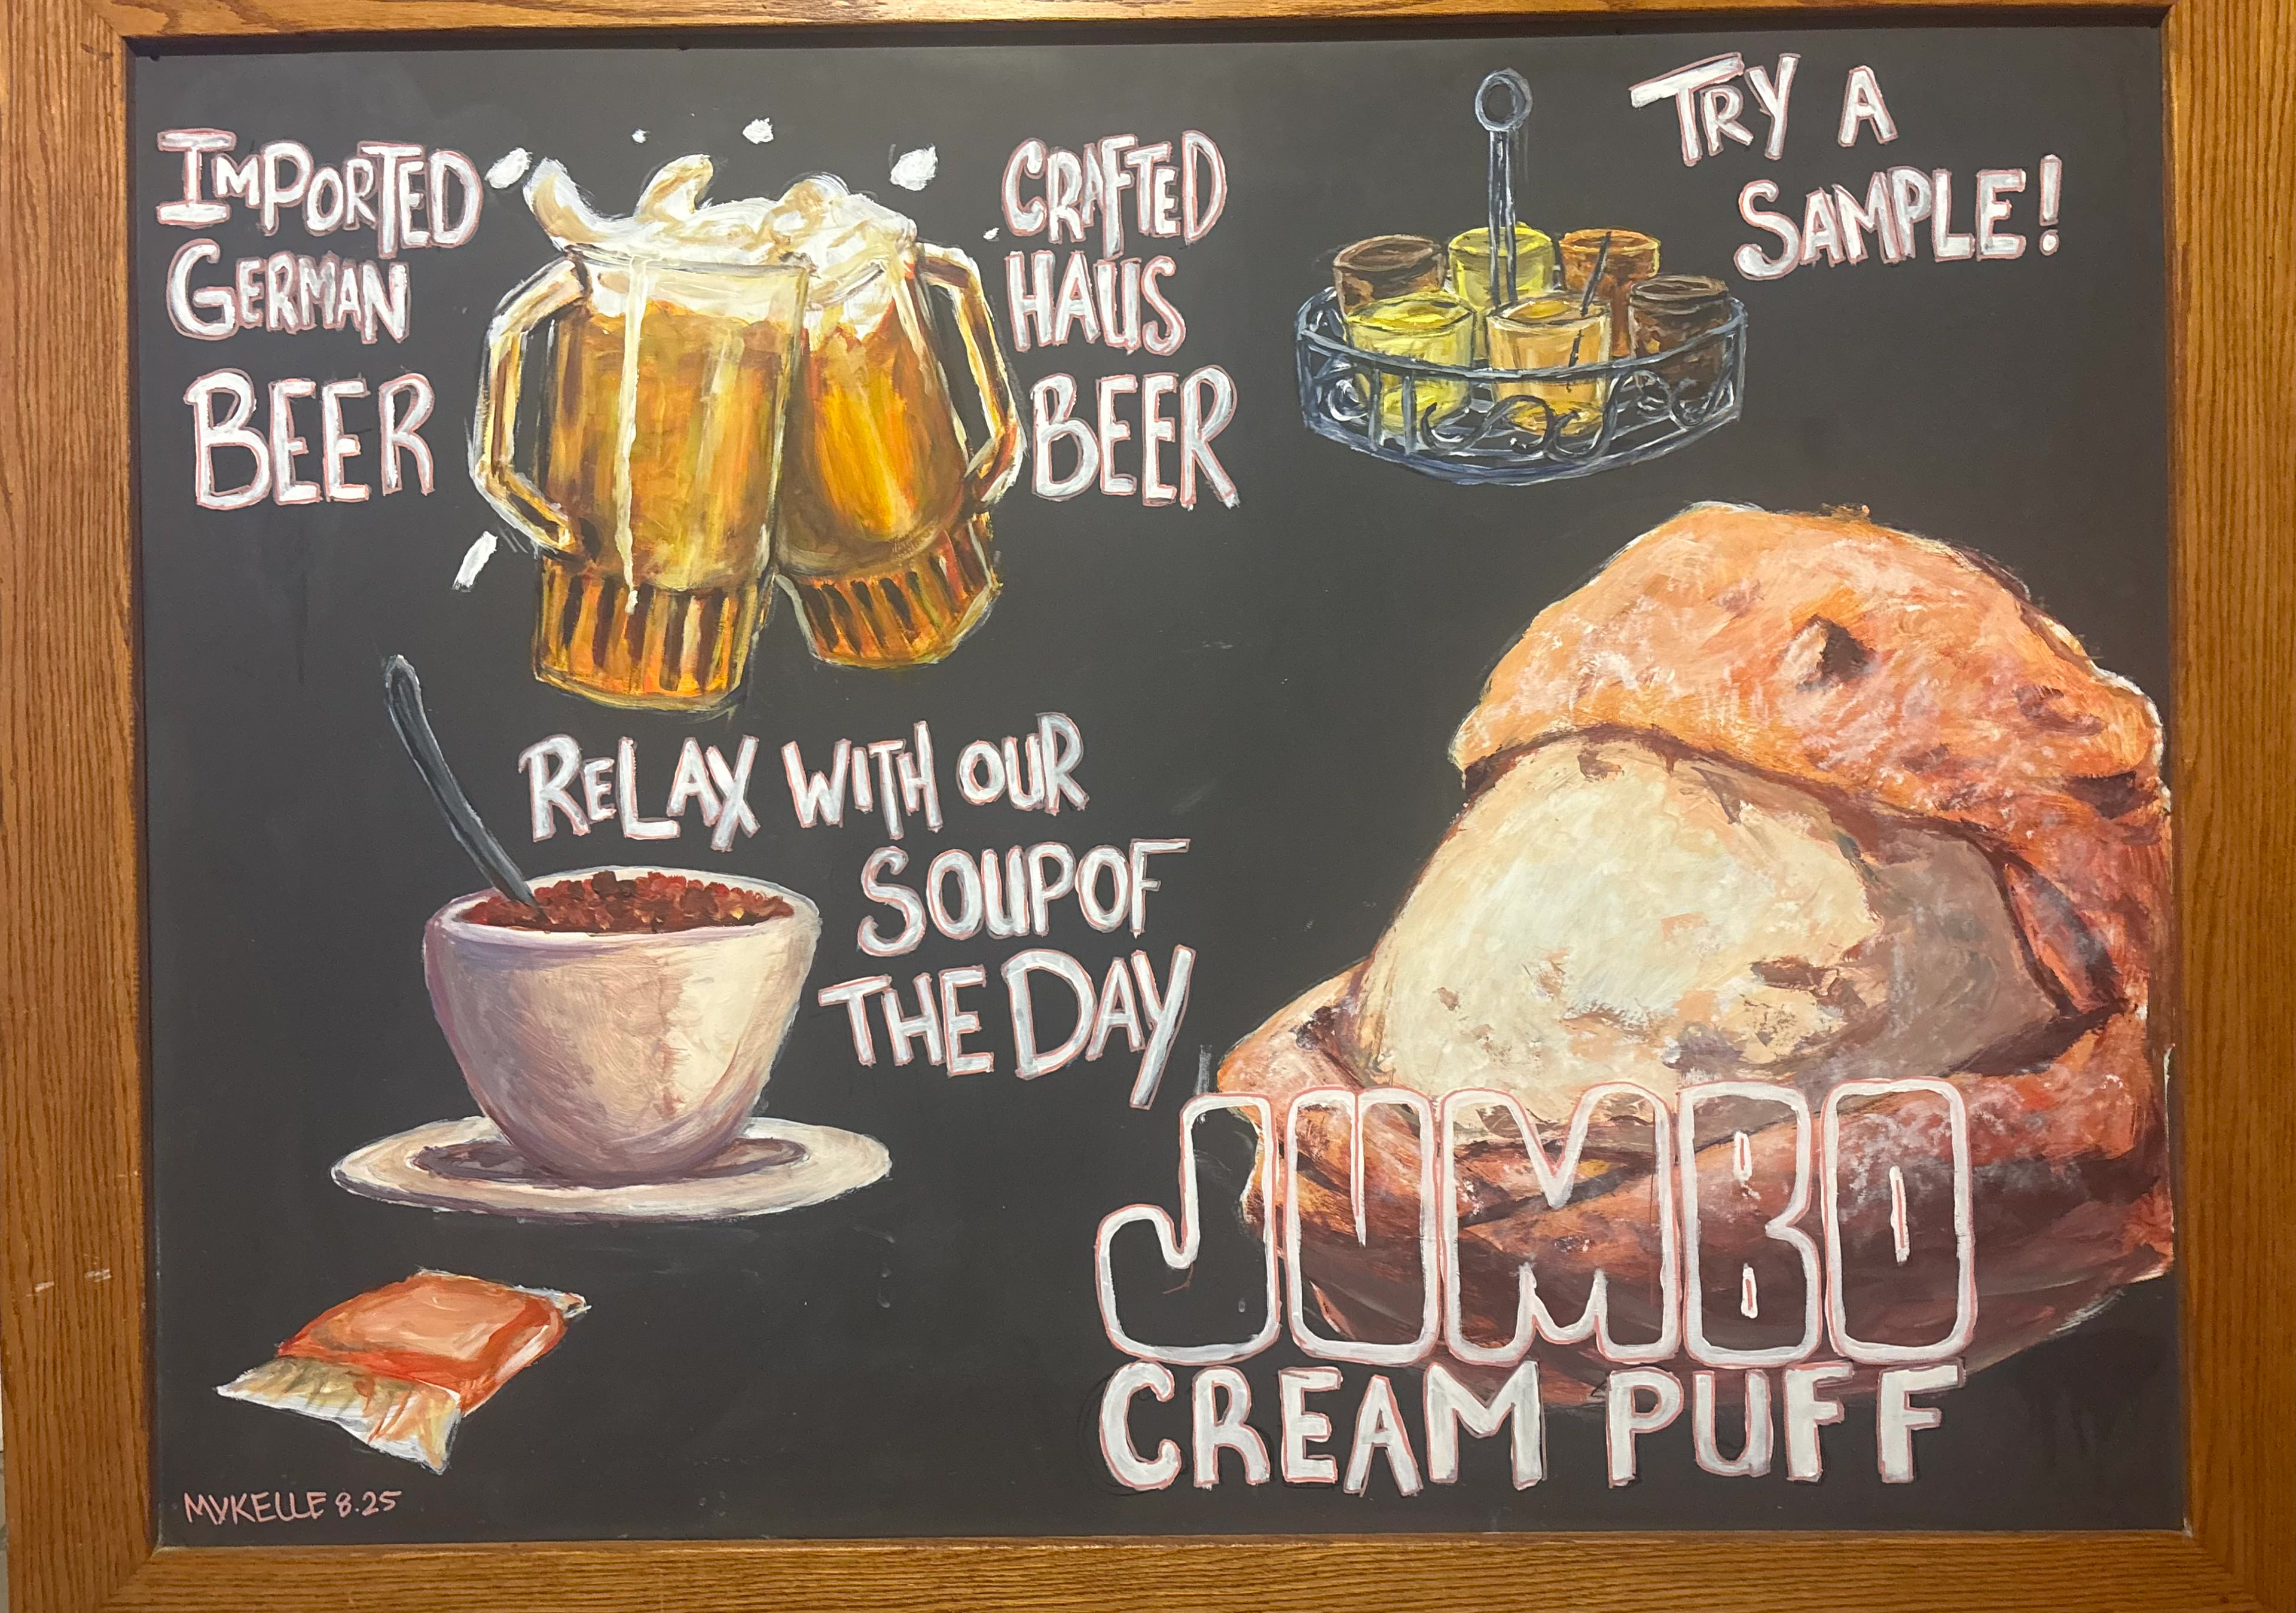 IMPORTED
GERMAN
BEER
CRAFTED
HAUS
BEER
TRY A
SAMPLE!
RELAX WITH OUR
SOUP OF
THE DAY
JUMBO
CREAM PUFF
MYKELLE 8.25